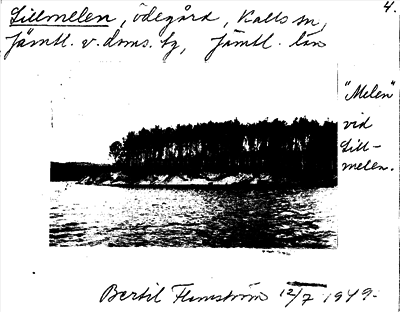 4.
Lillmelen, ödegård, Kalls sn,
Jämtl. v. doms. tg, Jämtl. län
"Melen"
vid
Lill-
melen.
Bertil Flemström 12/7 1949.